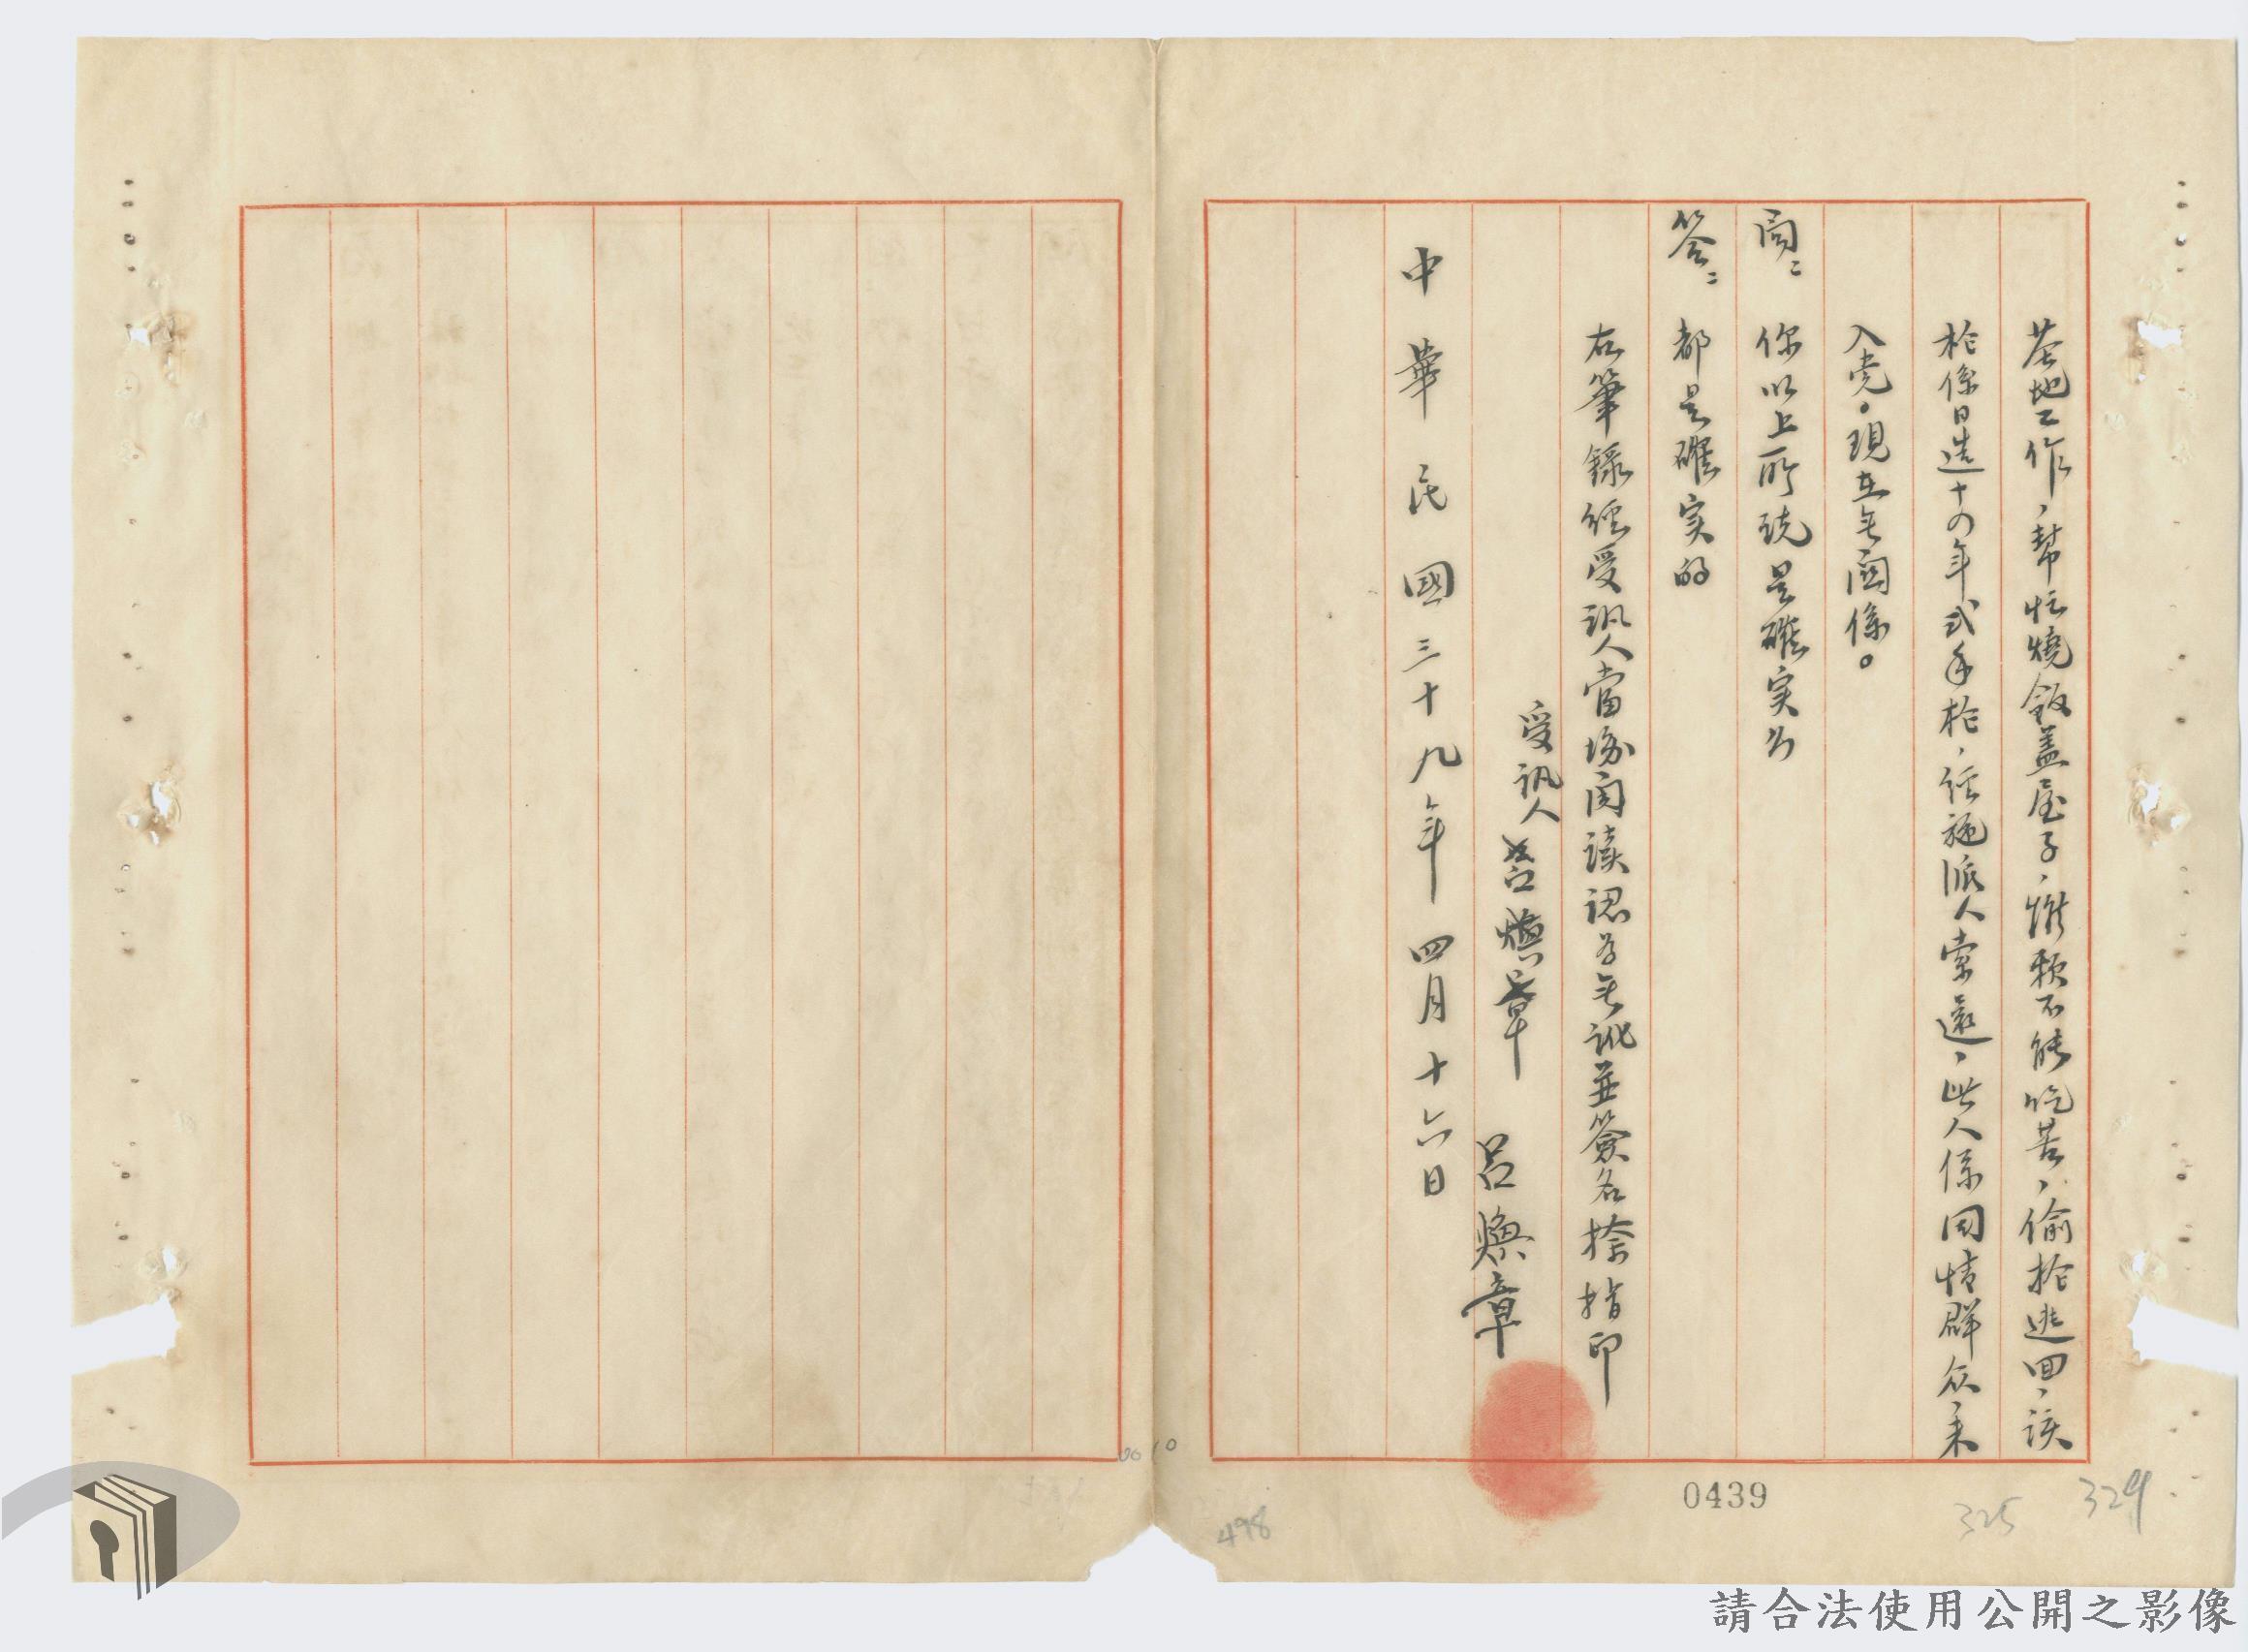 基地工作，幫忙燒飯蓋屋子，嫌頼不能吃苦，偷槍逃回，該
槍係日造十四年式手槍，經施派人索還，此人係同情群众未
入党。現在无関係。
問：你以上所说是確实么
答：都是確实的
右筆錄經受訊人當場閱读認为无訛並簽名捺指印
受訊人 呂煥章 呂煥章
中華民國三十九年四月十六日
0439
325
329
498
0010
請合法使用公開之影像